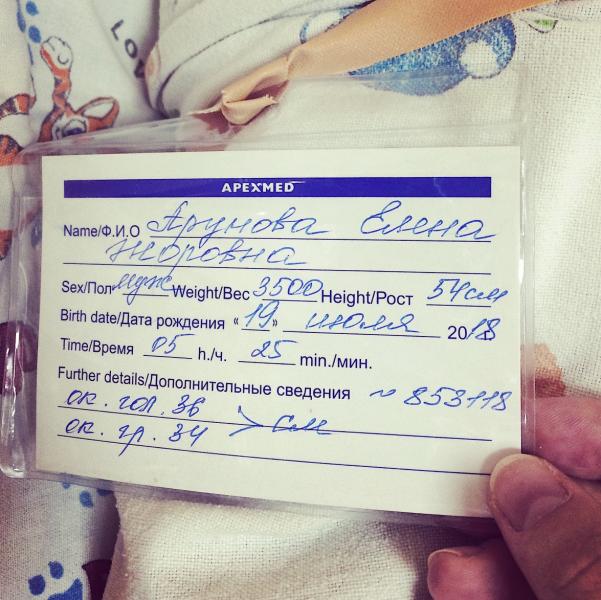 LOV
APEXMED
Name/Ф.И.О Арунова Елена
Жоровна
Sex/Пол муж Weight/Вес 3500 Height/Рост 54 см
Birth date/Дата рождения «19» июля 2018
Time/Время 05 h./ч. 25 min./мин.
Further details/Дополнительные сведения ~ 853118
ок. гол. 36
ок. гр. 34 > см